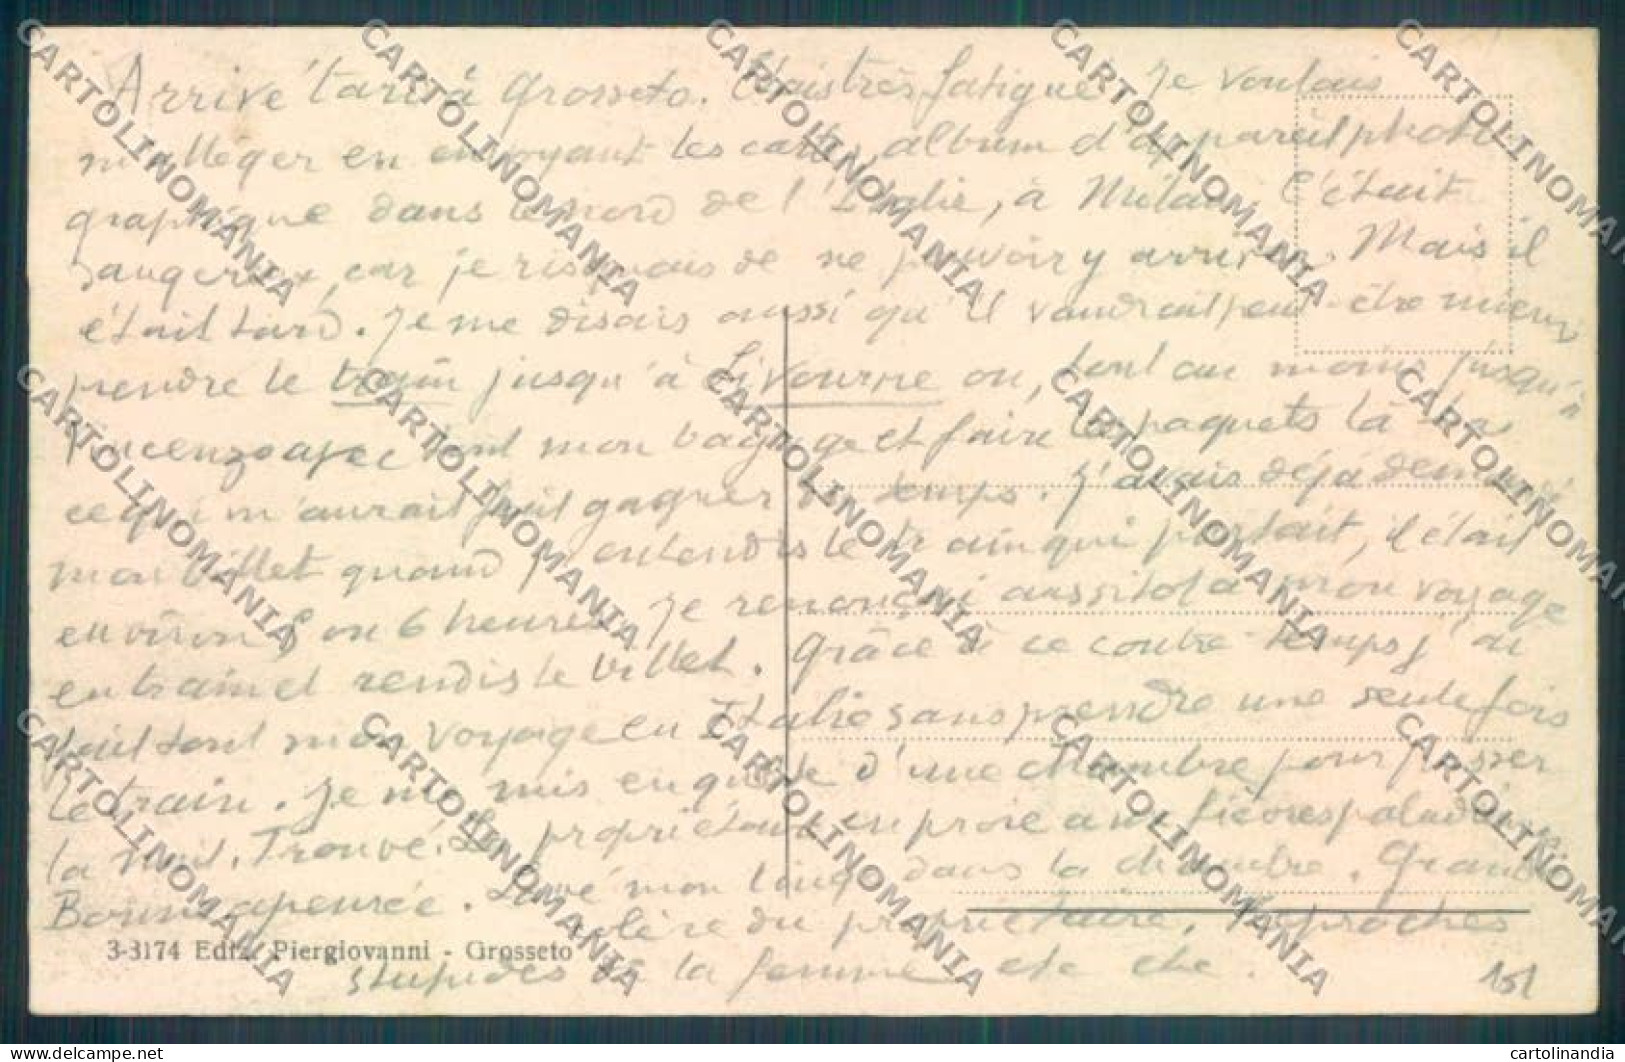 Arrivé tard à Grosseto. Mais très fatigué. Je voulais
m'alléger en envoyant les cartes, album d'appareil photo
graphique dans le nord de l'Italie, à Milan. C'était
dangereux, car je risquais de ne pouvoir y arriver. Mais il
était tard. Je me disais aussi qu'il vaudrait peut-être mieux
prendre le train jusqu'à Livourne ou, tout au moins jusqu'à
Vincenzo avec tout mon bagage et faire les paquets là bas
ce qui m'aurait fait gagner du temps. J'avais déjà demandé
mon billet quand j'entendis le train qui partait, il était
environ 5 ou 6 heures. Je renonçai aussitôt à mon voyage
en train et rendis le billet. Grâce à ce contre-temps j'ai
fait tout mon voyage en Italie sans prendre une seule fois
le train. Je me mis en quête d'une chambre pour passer
la nuit. Trouvé. Le propriétaire en proie aux fièvres paludéennes.
Bonne apeurée. Lavé mon linge dans la chambre. Grande
colère du propriétaire. Reproches
3-3174 Ediz. Piergiovanni - Grosseto
stupides de la femme etc etc.
151
CARTOLINOMANIA
cartolinandia
www.delcampe.net